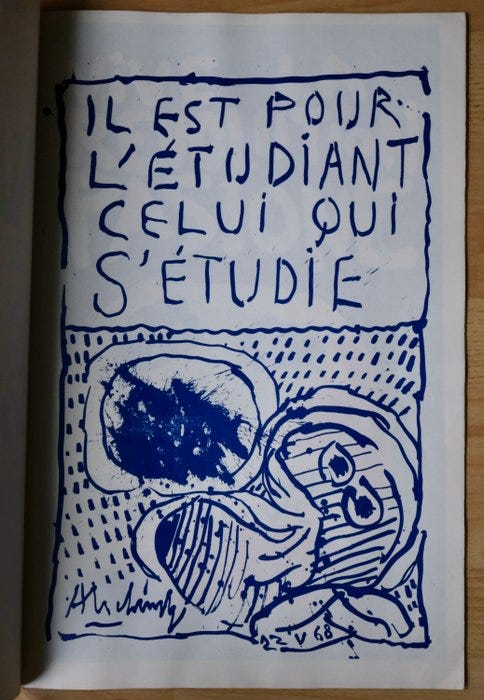 IL EST POUR
L'ÉTUDIANT
CELUI QUI
S'ÉTUDIE
Alechinsky
22 V 68